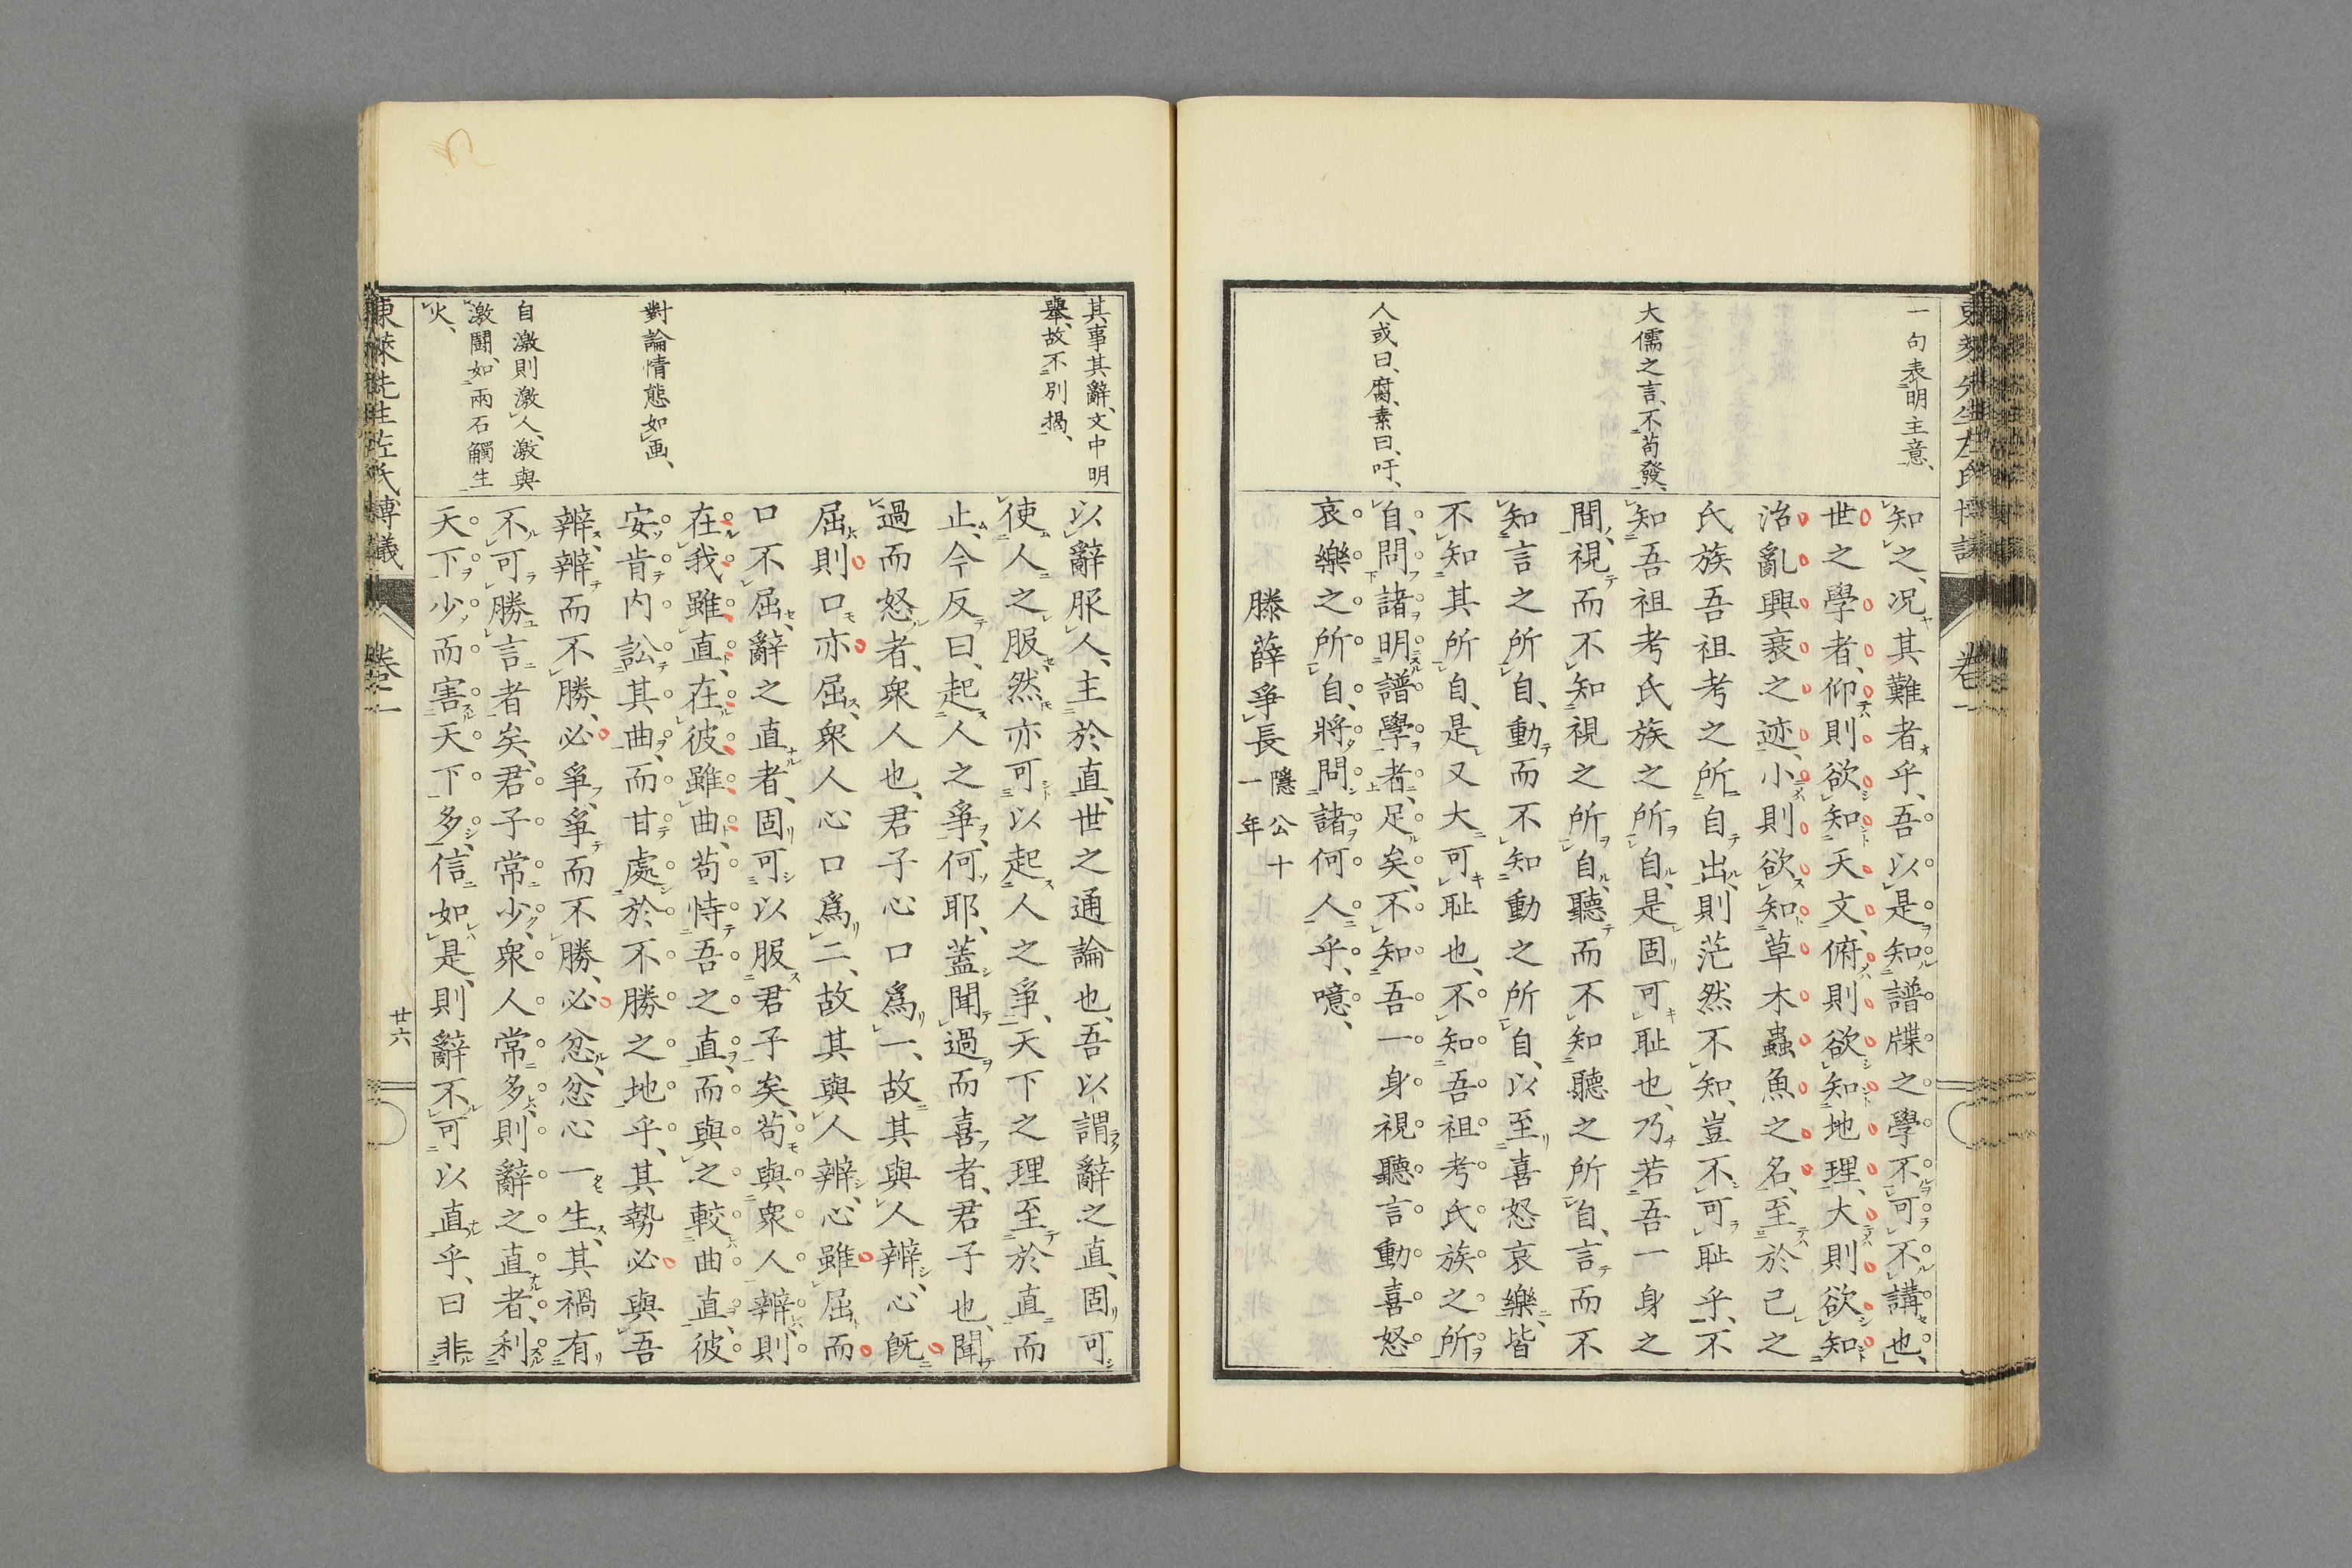 東萊先生左氏博議
卷一
一句表明主意、
大儒之言、不苟發、
人或曰、腐、素曰、吁、
知之、况其難者乎、吾以是知譜牒之學不可不講也、
世之學者、仰則欲知天文、俯則欲知地理、大則欲知
治亂興衰之迹、小則欲知草木蟲魚之名、至於己之
氏族吾祖考之所自出、則茫然不知、豈不可耻乎、不
知吾祖考氏族之所自、是固可耻也、乃若吾一身之
間、視而不知視之所自、聽而不知聽之所自、言而不
知言之所自、動而不知動之所自、以至喜怒哀樂、皆
不知其所自、是又大可耻也、不知吾祖考氏族之所
自、問諸明譜學者、足矣、不知吾一身視聽言動喜怒
哀樂之所自、將問諸何人乎、噫、
滕薛爭長 隱公十一年
其事其辭、文中明
舉、故不別揭、
對論情態如画、
自激則激人、激與
激鬪、如兩石觸生
火、
以辭服人、主於直、世之通論也、吾以謂辭之直、固可
使人之服、然亦可以起人之爭、天下之理至於直而
止、今反曰、起人之爭、何耶、蓋聞過而喜者、君子也、聞
過而怒者、衆人也、君子心口爲一、故其與人辨、心既
屈則口亦屈、衆人心口爲二、故其與人辨、心雖屈而
口不屈、辭之直者、固可以服君子矣、苟與衆人辨、則
在我雖直、在彼雖曲、苟恃吾之直、而與之較曲直、彼
安肯内訟其曲、而甘處於不勝之地乎、其勢必與吾
辨、辨而不勝、必爭、爭而不勝、必忿、忿心一生、其禍有
不可勝言者矣、君子常少、衆人常多、則辭之直者、利
天下少、而害天下多、信如是、則辭不可以直乎、曰非
東萊先生左氏博議
卷一
廿六